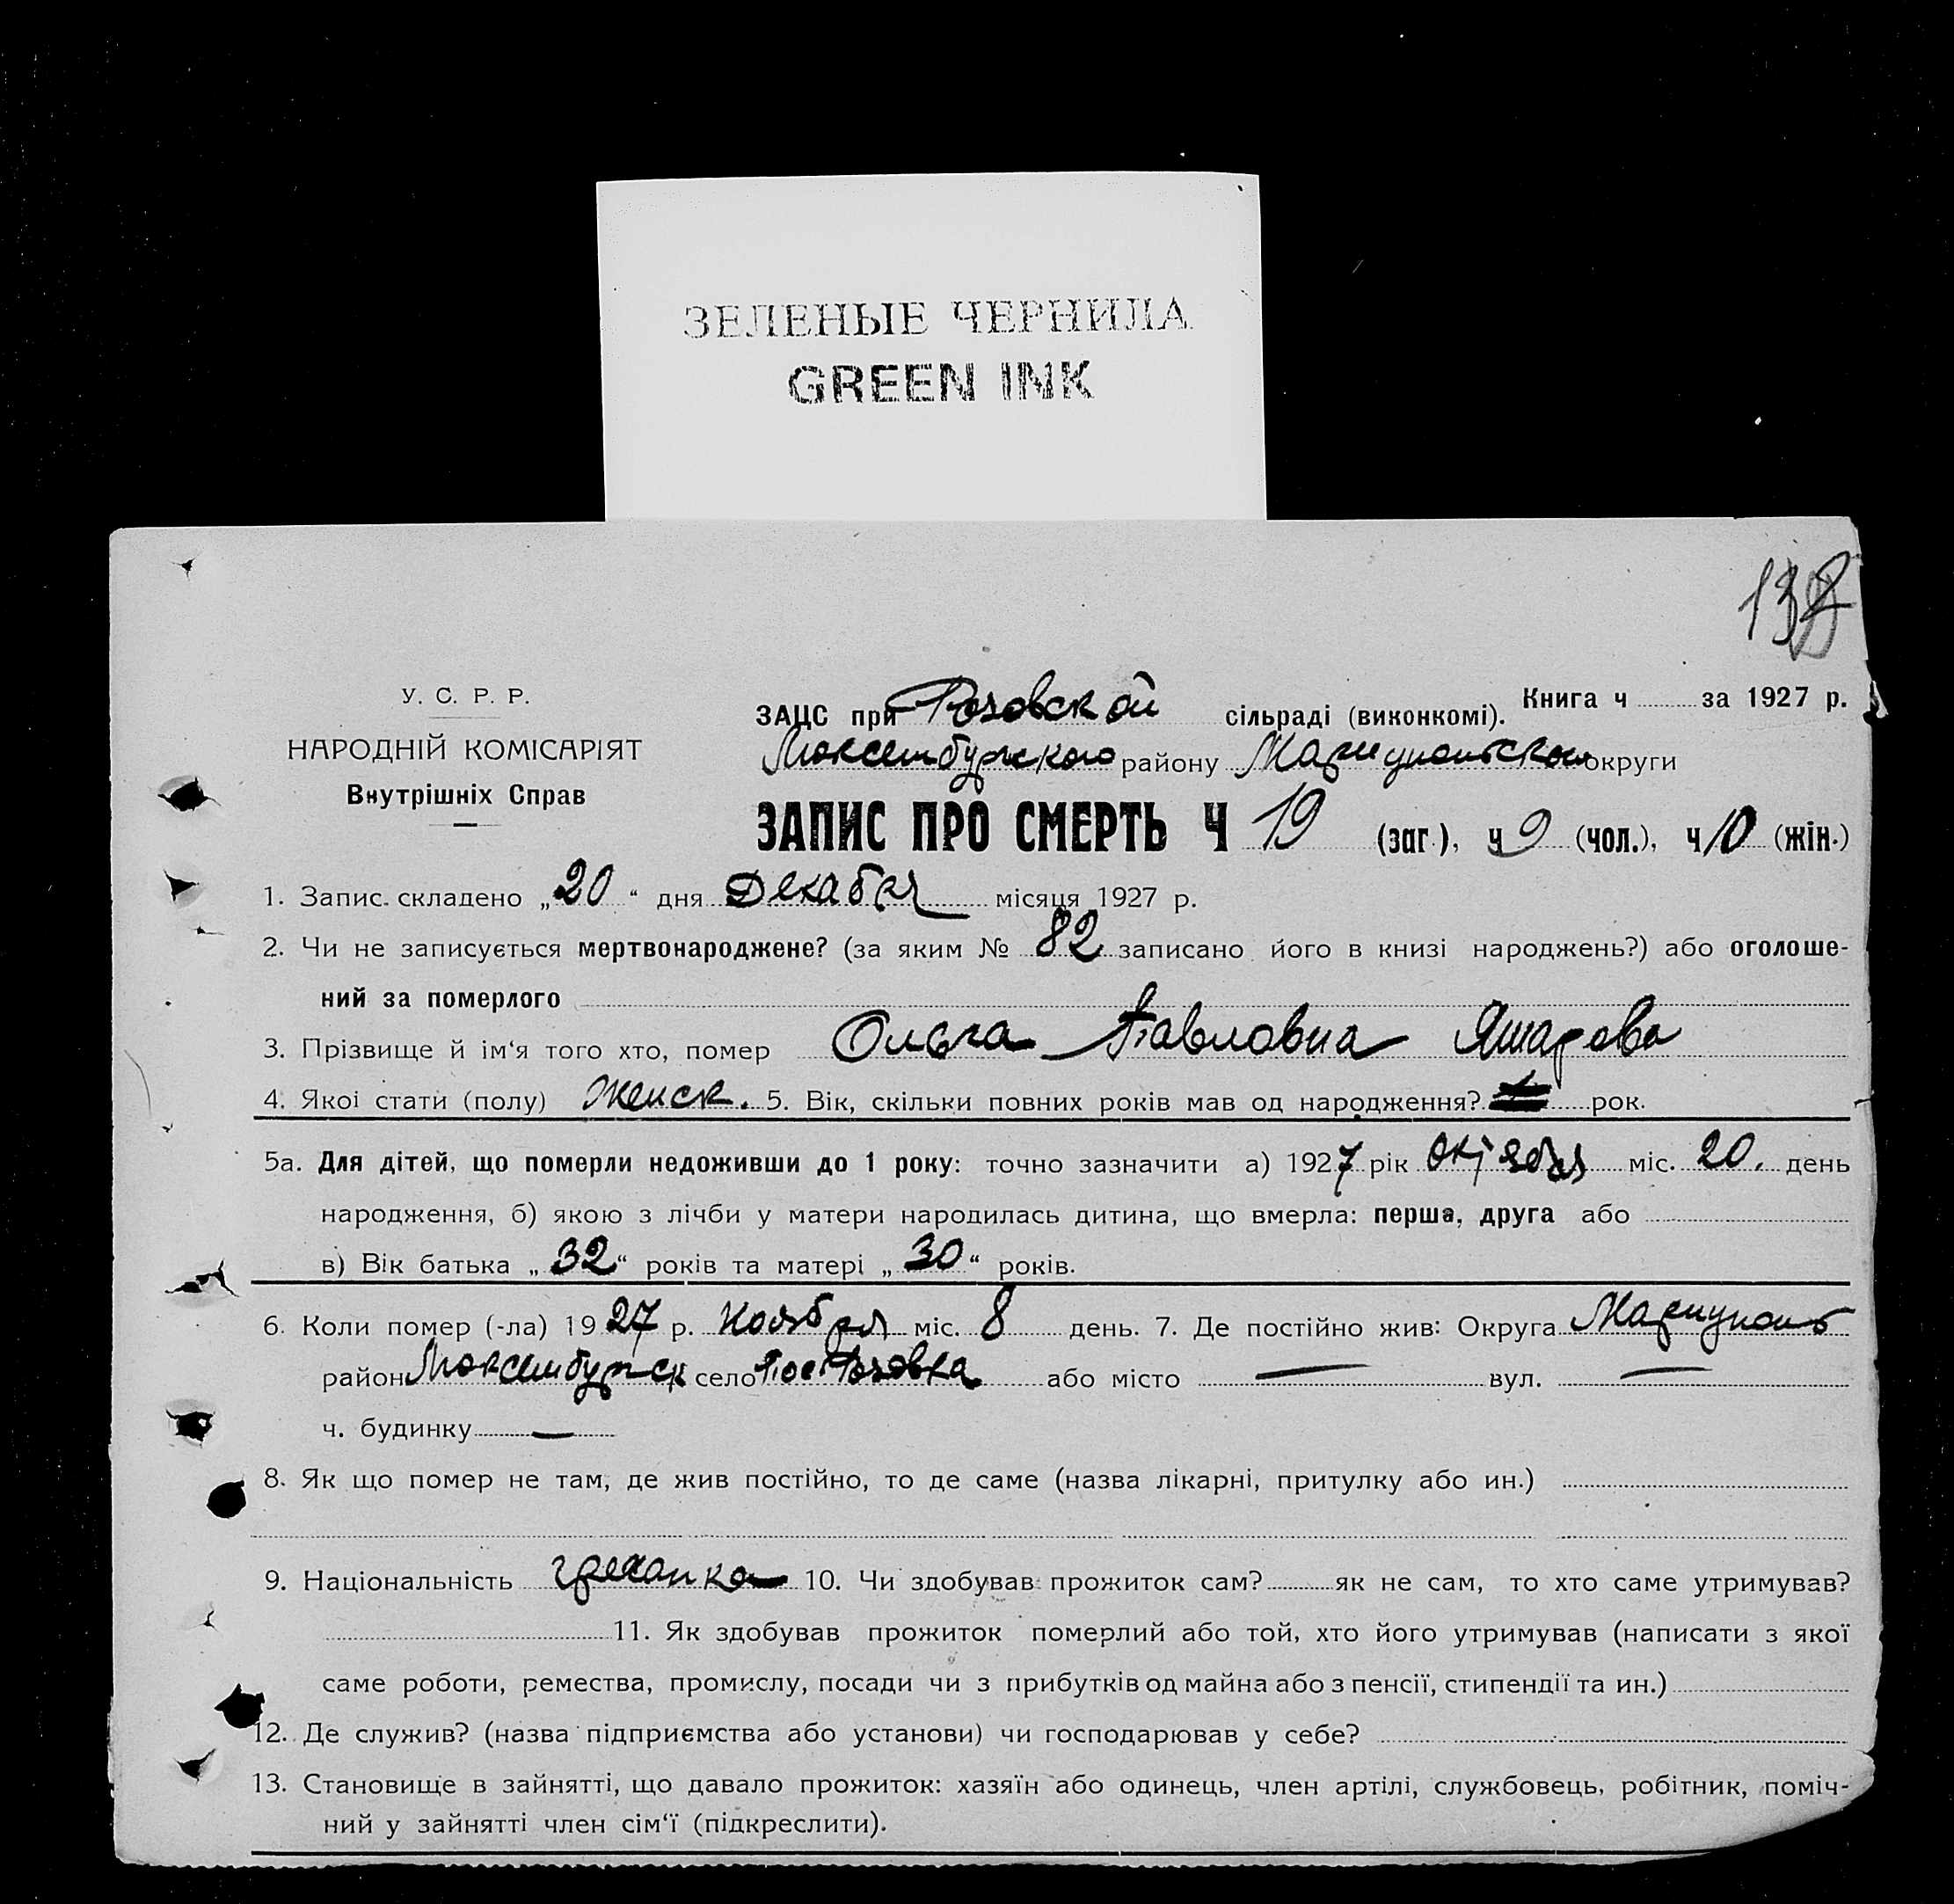 ЗЕЛЕНЫЕ ЧЕРНИЛА
GREEN INK
У. С. Р. Р.
НАРОДНІЙ КОМІСАРІЯТ
Внутрішніх Справ
Книга ч за 1927 р.
ЗАЦС при Розовской сільраді (виконкомі).
Люксембургского району Мариупольской округи
ЗАПИС ПРО СМЕРТЬ Ч 19 (заг.), ч 9 (чол.), ч 10 (жін.)
1. Запис складено „20“ дня Декабря місяця 1927 р.
2. Чи не записується мертвонароджене? (за яким № 82 записано його в книзі народжень?) або оголоше-
ний за померлого
3. Прізвище й ім‘я того хто, помер Ольга Павловна Яшарова
4. Якоі стати (полу) Женск. 5. Вік, скільки повних років мав од народження? рок.
5а. Для дітей, що померли недоживши до 1 року: точно зазначити а) 1927 рік октября міс. 20. день
народження, б) якою з лічби у матери народилась дитина, що вмерла: перша, друга або
в) Вік батька „32“ років та матері „30“ років.
6. Коли помер (-ла) 1927 р. Ноября міс. 8 день. 7. Де постійно жив: Округа Мариуполь
район Люксембургск село Пос. Розовка або місто — вул. —
ч. будинку —
8. Як що помер не там, де жив постійно, то де саме (назва лікарні, притулку або ин.)
9. Національність гречанка 10. Чи здобував прожиток сам? як не сам, то хто саме утримував?
11. Як здобував прожиток померлий або той, хто його утримував (написати з якої
саме роботи, ремества, промислу, посади чи з прибутків од майна або з пенсії, стипендії та ин.)
12. Де служив? (назва підприємства або установи) чи господарював у себе?
13. Становище в зайнятті, що давало прожиток: хазяїн або одинець, член артілі, службовець, робітник, поміч-
ний у зайнятті член сім‘ї (підкреслити).